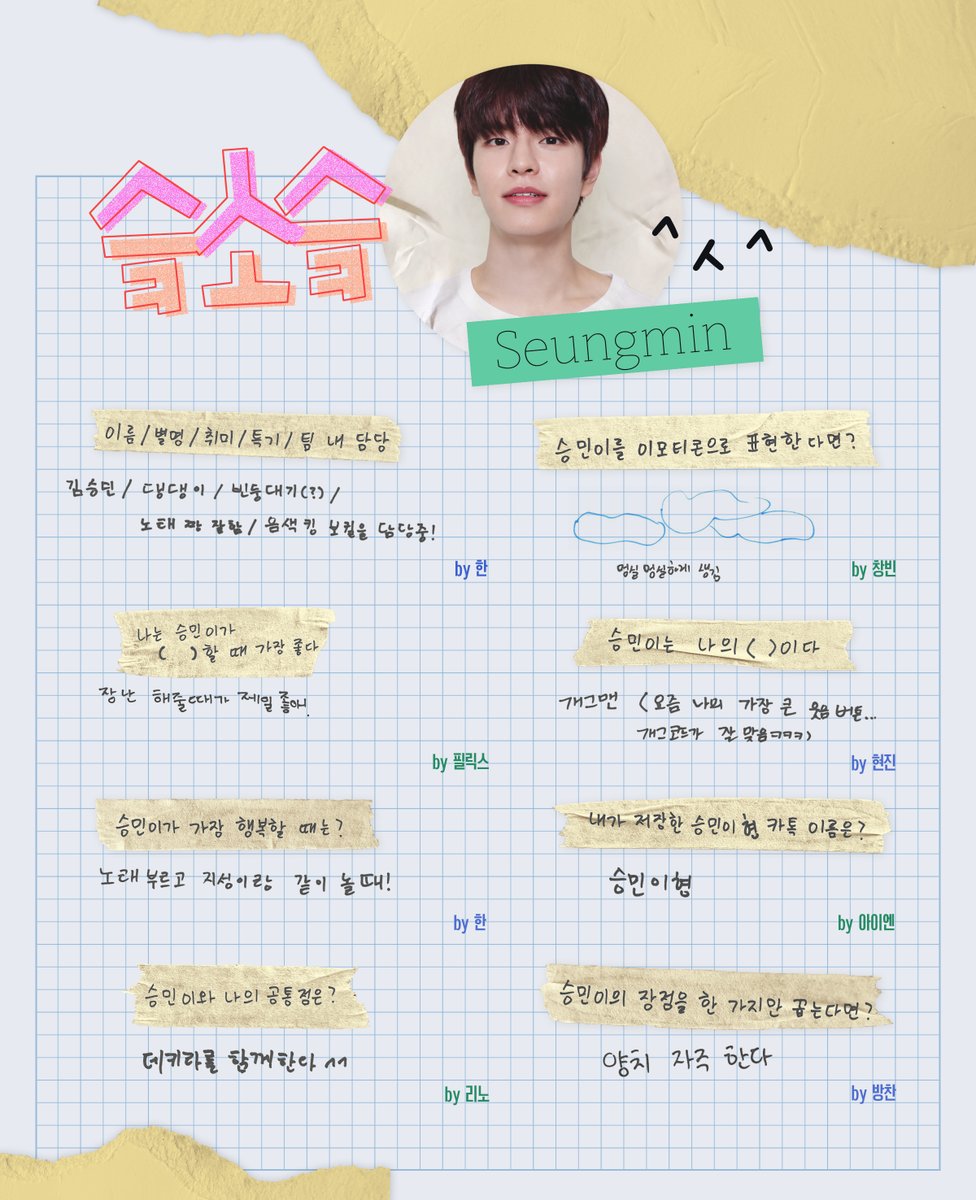 슴소슴
^ㅅ^
Seungmin
이름/별명/취미/특기/팀 내 담당
김승민 / 댕댕이 / 빈둥대기(?) /
노래 짱 잘함/ 음색킹 보컬을 담당중!
by 한
승민이를 이모티콘으로 표현한다면?
멍실멍실하게 생김
by 창빈
나는 승민이가
( )할 때 가장 좋다
장난 해줄때가 제일 좋아!
by 필릭스
승민이는 나의 ( )이다
개그맨 (요즘 나의 가장 큰 웃음버튼...
개그코드가 잘 맞음ㅋㅋㅋ)
by 현진
승민이가 가장 행복할 때는?
노래 부르고 지성이랑 같이 놀때!
by 한
내가 저장한 승민이 형 카톡 이름은?
승민이형
by 아이엔
승민이와 나의 공통점은?
데키라를 함께한다 ^^
by 리노
승민이의 장점을 한 가지만 꼽는다면?
양치 자주 한다
by 방찬